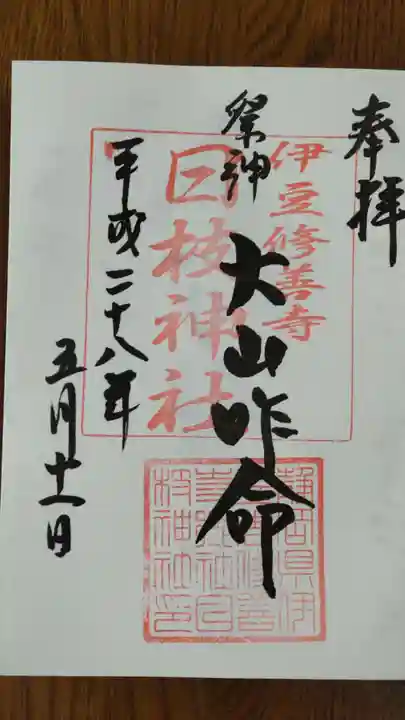 奉拝
伊豆修善寺
祭神
大山咋命
日枝神社
平成二十八年
五月十一日
静岡県伊
枝神社印